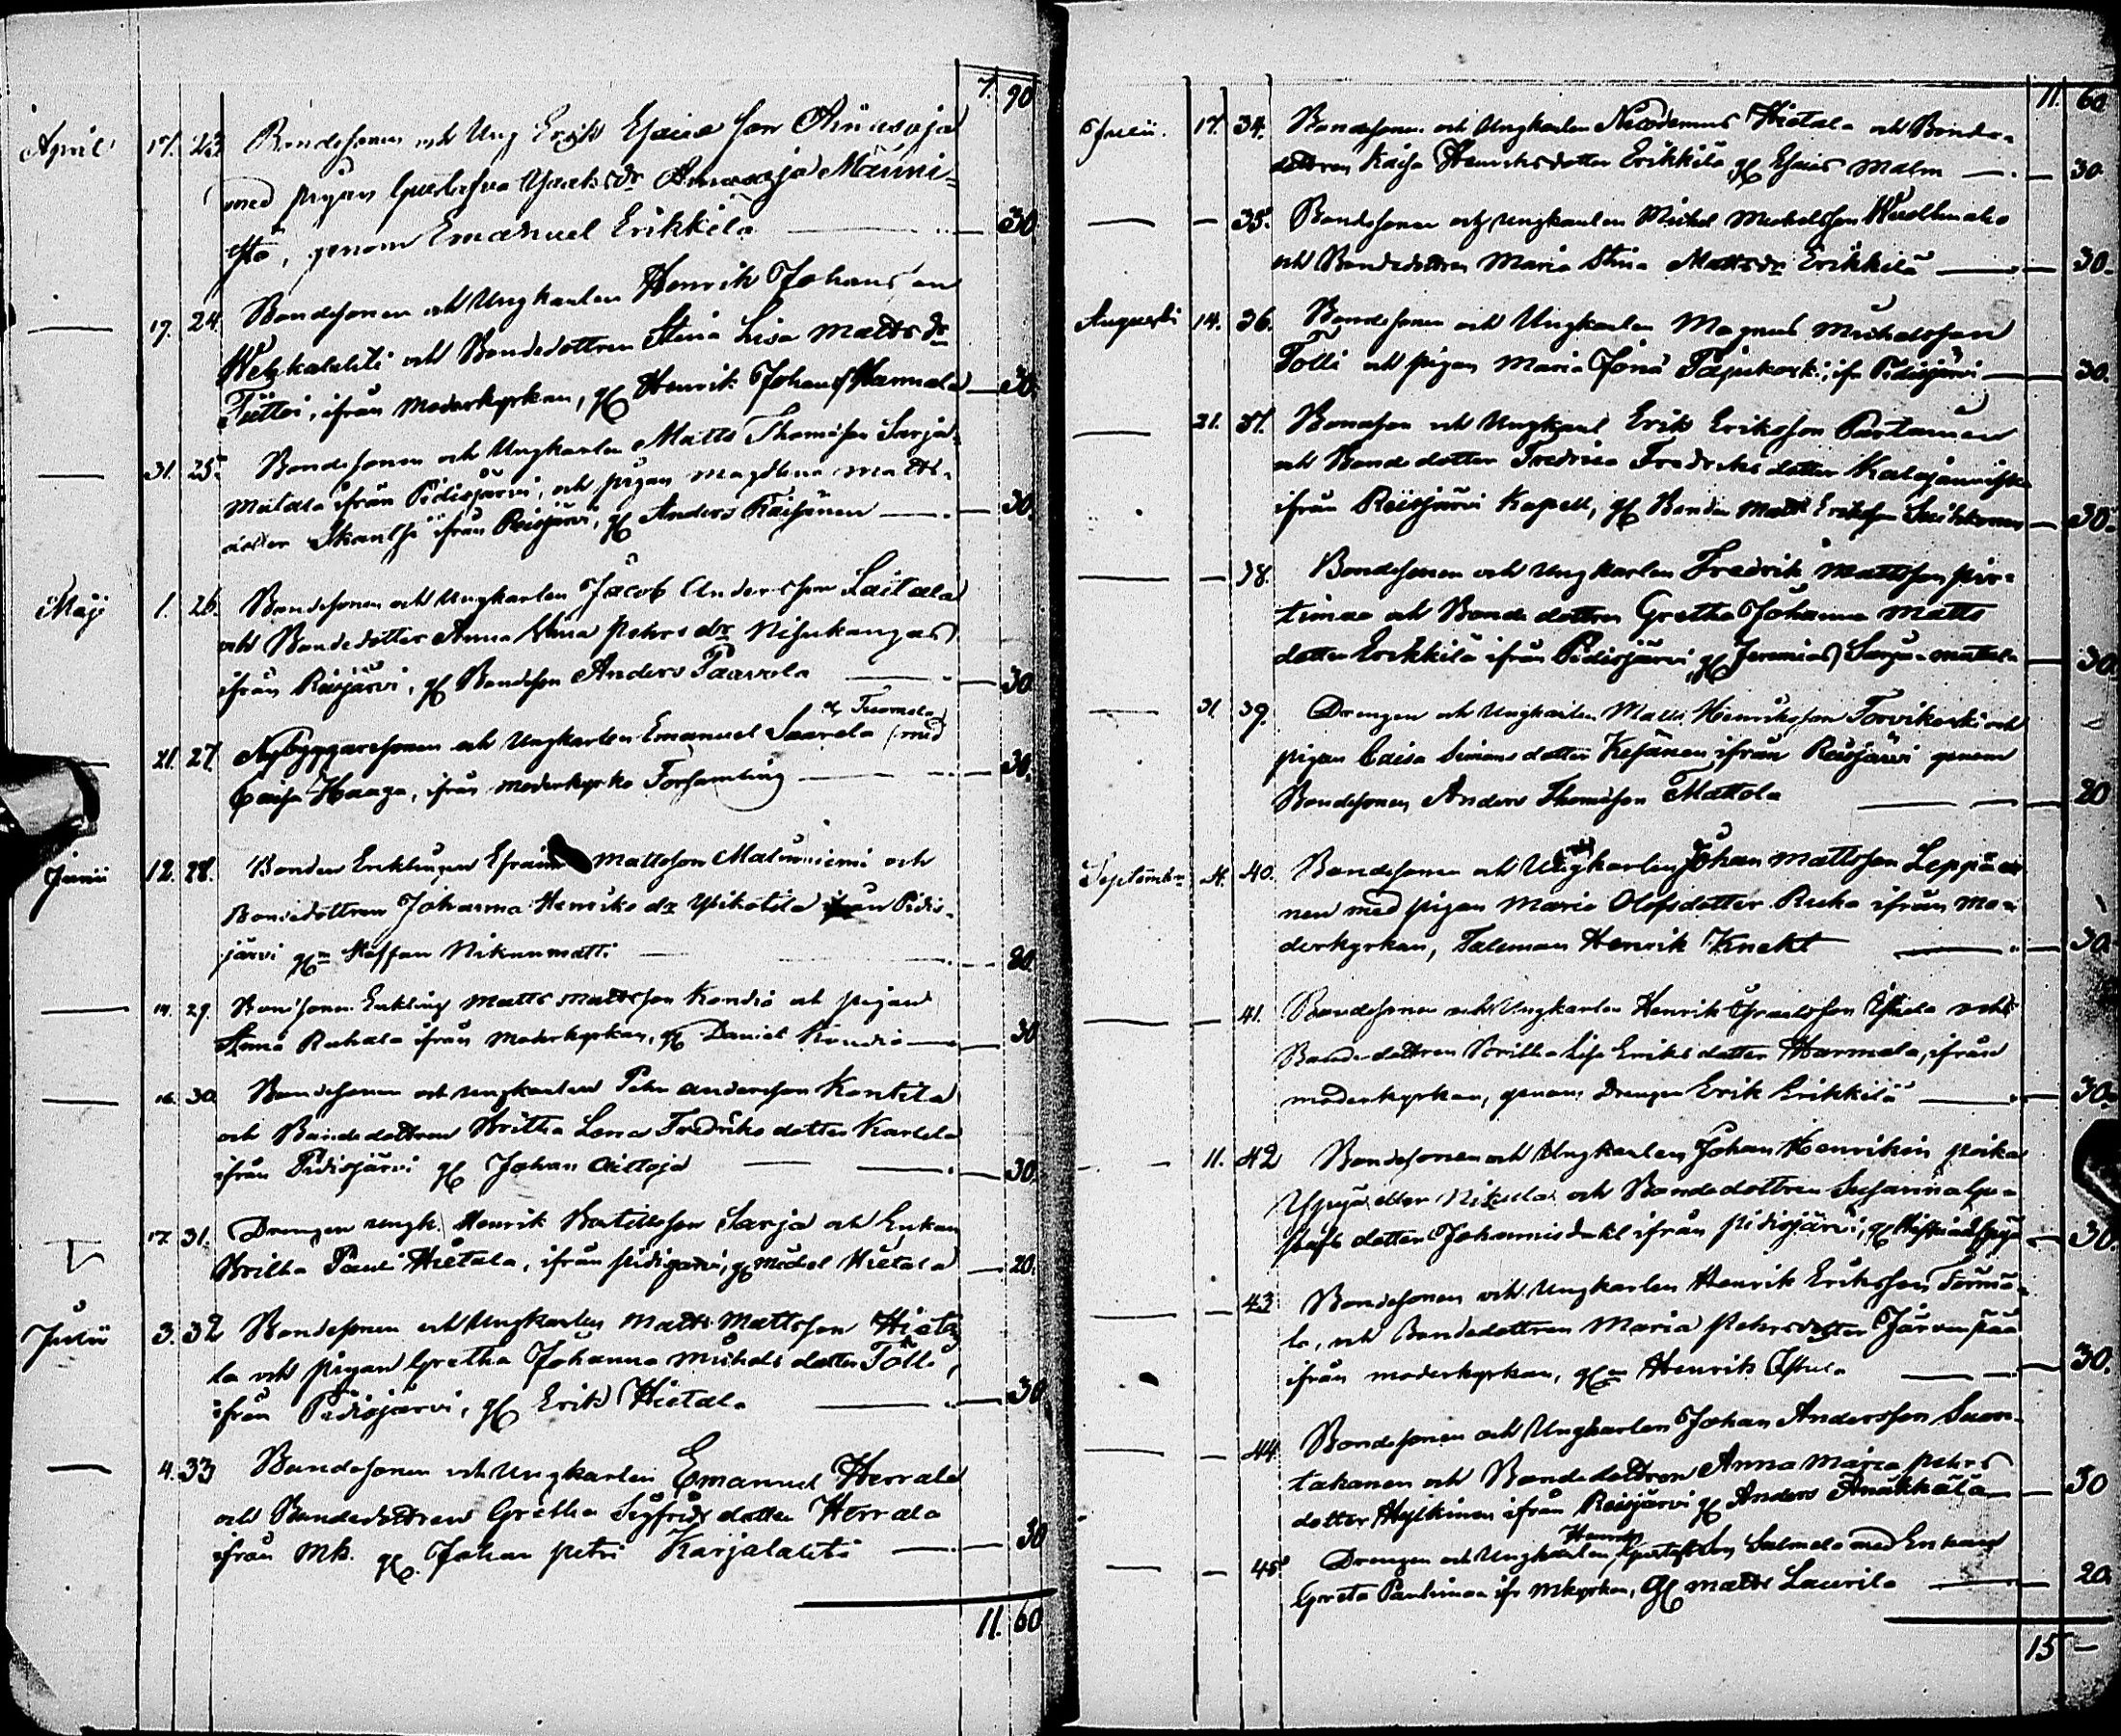 7. 90
April 17. 23 Bondesonen och Ung Erik Esaias son Ainasoja
med pigan Gustafva Jacobsdr Ainasoja Männi-
stö, genom Emanuel Erikkilä 30.
17. 24. Bondesonen och Ungkarlen Henrik Johansson
och Bondedottren Stina Lisa Mattsdr
ifrån Moderkyrkan, gm Henrik Johans Hannula 30.
31. 25. Bondesonen och Ungkarlen Matts Thomsson Sarja-
matala ifrån Pidisjärvi, och pigan Magdlena Matts-
dotter ifrån Reisjärvi, gm Anders Räisänen 30.
Maji 1. 26. Bondesonen och Ungkarlen Jacob Andersson Laitala
och Bondedotter Anna Stina Pehrs dr Nisukangas
ifrån Reisjärvi, gm Bondeson Anders Paavola 30
gm Tuomela
21. 27. Nybyggaresonen och Ungkarlen Emanuel Saarela med
Caisa Haaga, ifrån moderkyrko Församling 30.
Junii 12. 28. Bonden Enklingen Efraim Mattsson Malmiemi och
Bondedottren Johanna Henriks dr ifrån Pidis-
järvi gm Staffan Nikunmatti 20.
14. 29. Bondsonen Enkling Matts Mattsson Kondio och pigan
Anna Ruhala ifrån Moderkyrkan, gm Daniel Kondio 30
16. 30. Bondesonen och ungkarlen Pehr Andersson Konttila
och Bondedottren Britha Lena Fredriks dotter Karlela
ifrån Pidisjärvi gm Johan Aittoja 30.
17. 31. Drengen ungk. Henrik Bertillsson Sarja och Enkan
Britha Pauli Hietala, ifrån Pidisjärvi, gm Michel Hietala 20.
Julii 3. 32 Bondesonen och Ungkarlen Matts Mattsson Hieta
la och pigan Gretha Johanna Michels dotter Tölli,
ifrån Pidisjärvi, gm Erik Hietala 30
4. 33 Bondesonen och Ungkarlen Emanuel Herrala
och Bondedottren Gretha Sigfrids dotter Herrala
ifrån Mk. gm Johan Petri Karjalahti 30
11. 60
11. 60
Julii. 17. 34. Bondesonen och Ungkarlen Nicodemus Hietala och Bonde-
dottren Kaisa Henriksdotter Erikkilä gm Esaias Malm 30.
35. Bondesonen och Ungkarlen Michel Michelsson
och Bondedottren Maria Stina Mattsdr Erikkilä 30.
Augusti 14. 36. Bondesonen och Ungkarlen Magnus Michelsson
Tölli och pigan Maria Jona Pajukoski, ifr Pidisjärvi 30.
21. 37. Bondeson och Ungkarl Erik Eriksson Partanen
och Bondedotter Fredrica Fredriks dotter
ifrån Reisjärvi Kapell, gm Bonden Matts Eriksson 30.
38. Bondesonen och Ungkarlen Fredrik Mattsson Pir-
timaa och Bonde dottren Gretha Johanna Matts
dotter Erikkilä ifrån Pidisjärvi gm Jeremias Sarjanmatala 30.
31. 39. Drengen och Ungkarlen Matts Henriksson Torvikoski och
pigan Caisa Simons dotter Kesänen, ifrån Reisjärvi genom
Bondesonen Anders Thomsson Mattola 20
September 4. 40. Bondesonen och Ungkarlen Johan Mattsson Leppä
nen med pigan Maria Olofsdotter Ruha ifrån mo-
derkyrkan, Taleman Henrik Knekt 30.
41. Bondesonen och Ungkarlen Henrik och
Bondedottren Britha Lisa Eriks dotter Harmala, ifrån
moderkyrkan, genom Drengen Erik Erikkilä 30.
11. 42 Bondesonen och Ungkarlen Johan Henriksson
eller Nikula och Bondedottren Susanna Gu-
stafs dotter ifrån Pidisjärvi, gm 30.
43 Bondesonen och Ungkarlen Henrik Eriksson Törmä-
lä, och Bondedottren Maria Pehrsdotter Järvenpää
ifrån moderkyrkan, gm Henrik 30.
44 Bondesonen och Ungkarlen Johan Andersson Suon-
takanen och Bondedottren Anna Maria Pehrs
dotter Hylkinen ifrån Reisjärvi gm Anders 30
Henrik
45. Drengen och Ungkarlen Gustafsson Salmela med Enkan
Greta Paulimaa ifr mkyrkan, gm Matts Laurila 20.
15 —